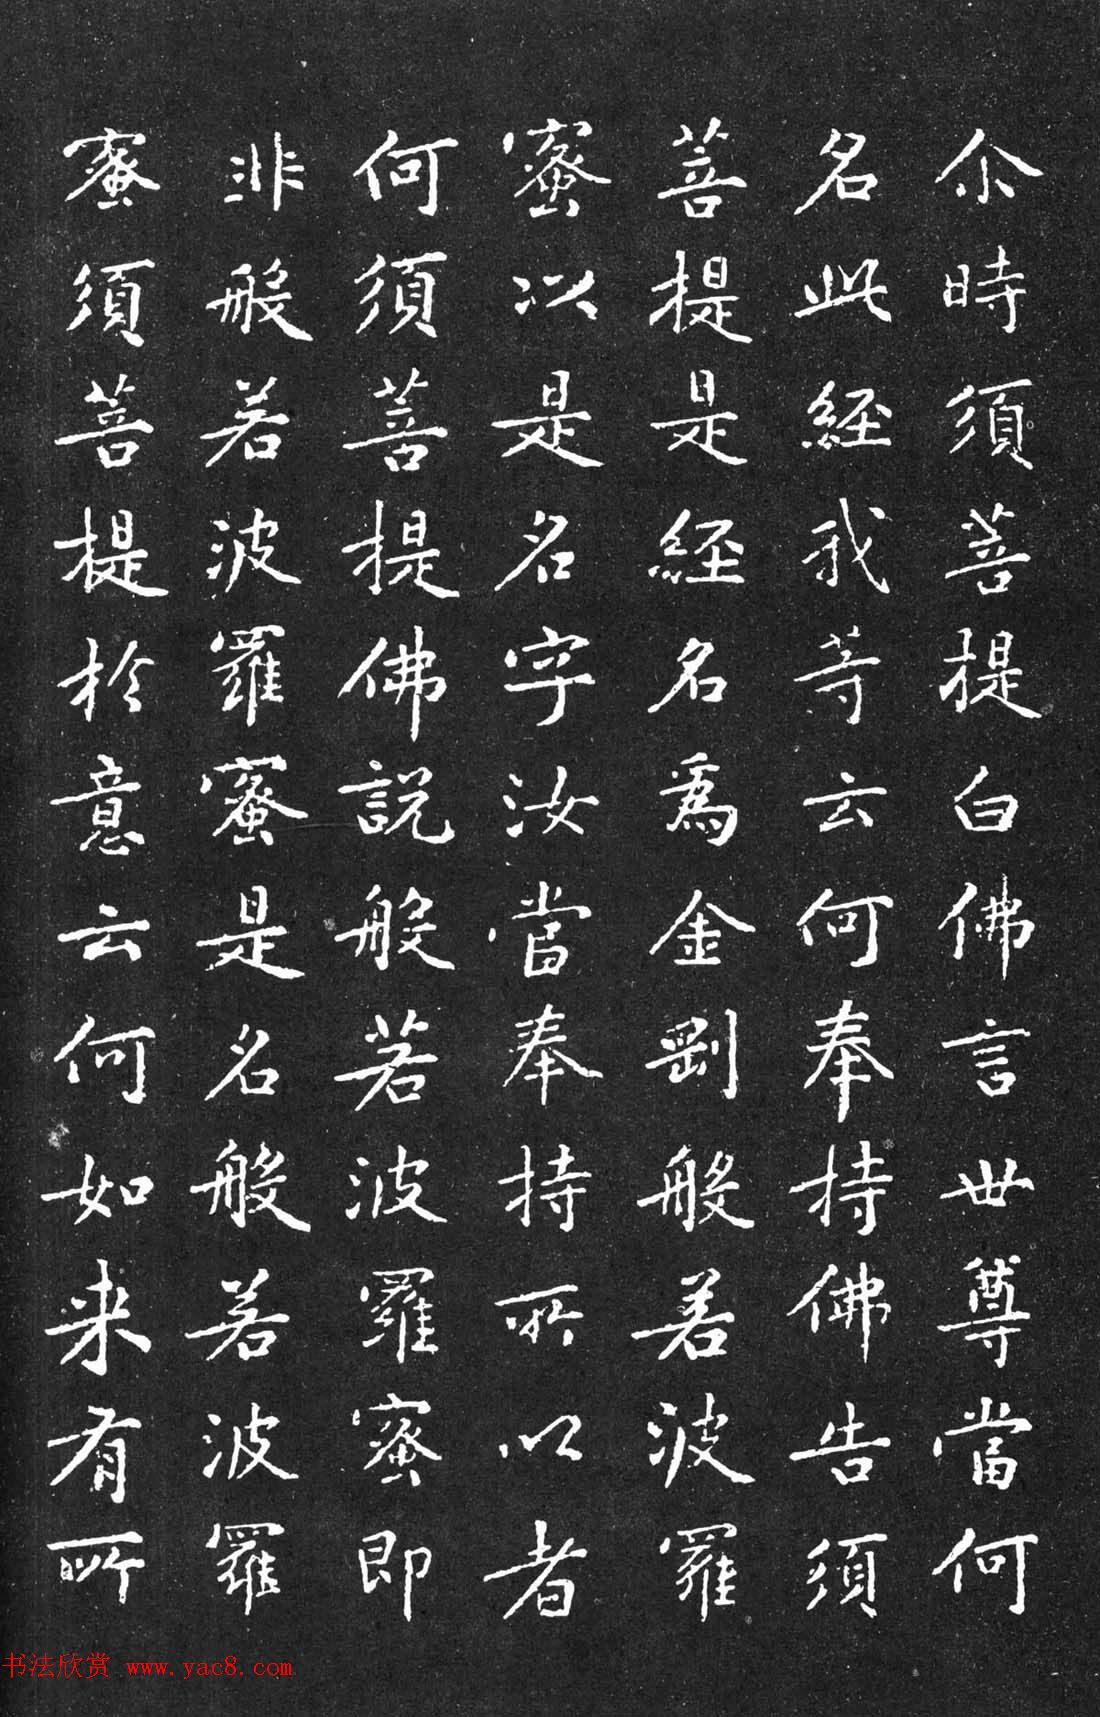 尒時須菩提白佛言世尊當何
名此經我等云何奉持佛告須
菩提是經名爲金剛般若波羅
蜜以是名字汝當奉持所以者
何須菩提佛說般若波羅蜜即
非般若波羅蜜是名般若波羅
蜜須菩提於意云何如来有所
书法欣赏 www.yac8.com